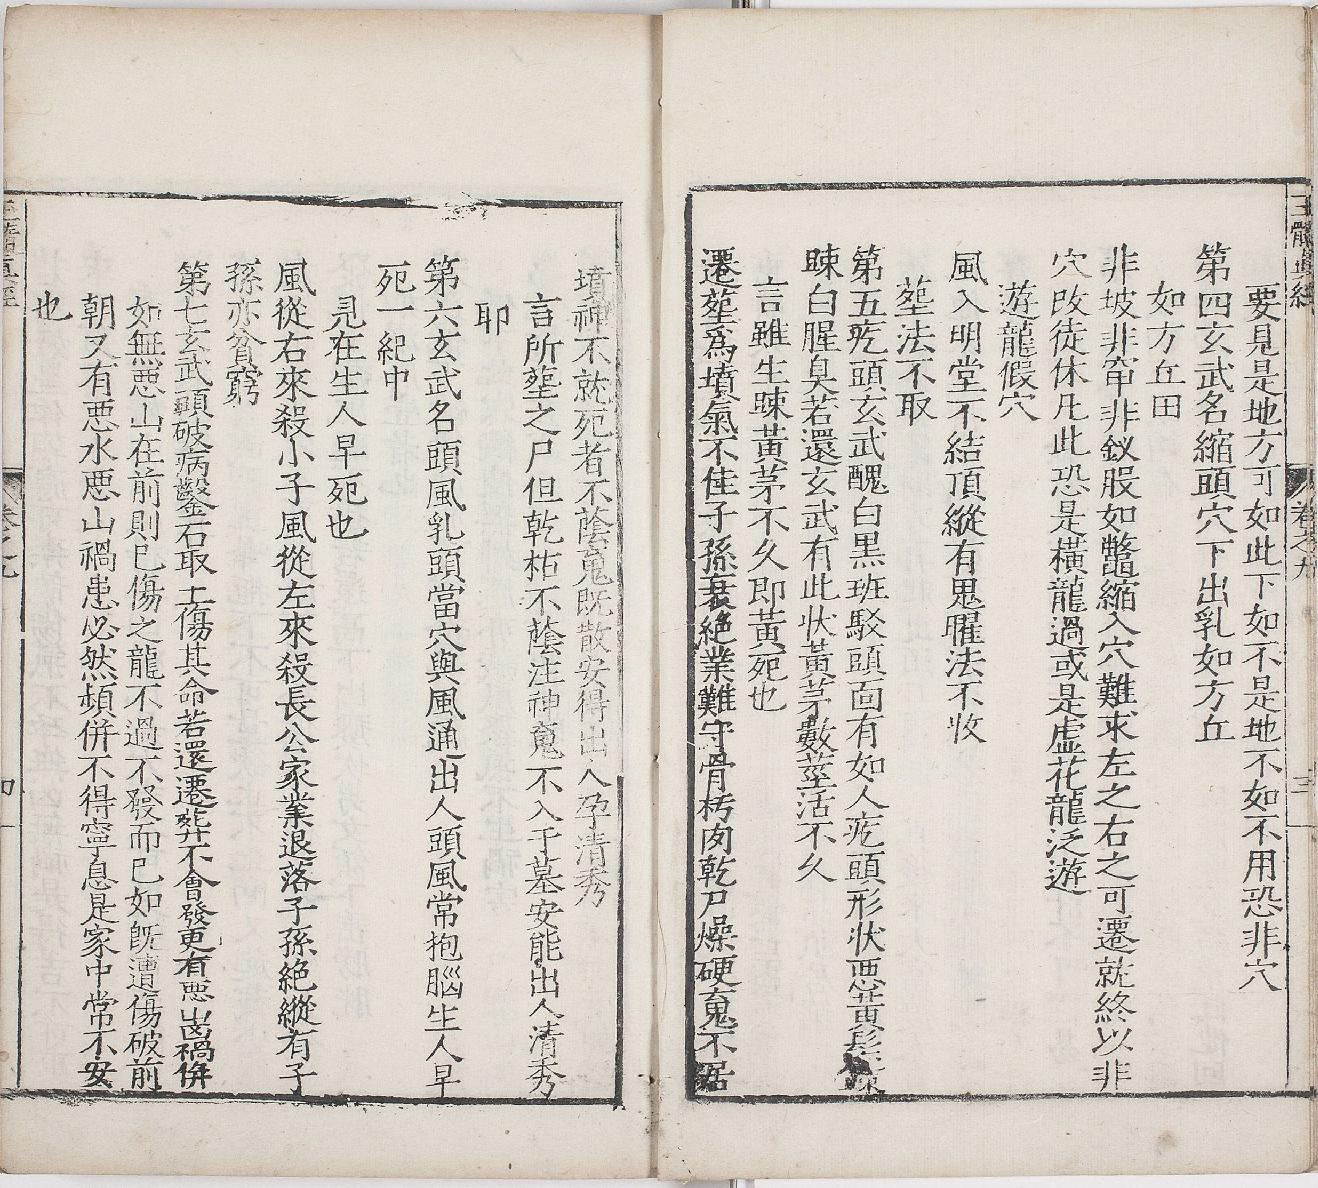 要見是地方可如此下如不是地不如不用恐非穴
第四玄武名縮頭穴下出乳如方丘
如方丘田
非坡非窄非釵股如鼈縮入穴難求左之右之可遷就終以非
穴改徒休凡此恐是橫龍過或是虛花龍泛遊
遊龍假穴
風入明堂不結頂縱有思曜法不收
塟法不取
第五疙頭玄武醜白黑班駁頭面有如人疙頭形狀悪黃髮踈
踈白腥臭若還玄武有此状黃茅數莖活不久
言雖生踈黃茅不久即黃死也
遷塟爲墳氣不隹子孫衰絶業難守骨朽肉乾尸燥硬䰟不居
墳神不就死者不蔭䰟既散安得出人孕清秀
言所塟之尸但乾枯不蔭注神䰟不入于墓安能出人清秀
耶
第六玄武名頭風乳頭當穴與風通出人頭風常抱腦生人早
死一紀中
見在生人早死也
風從右來殺小子風從左來殺長公家業退落子孫絶縱有子
孫亦貧窮
第七玄武頭破病鑿石取土傷其命若還遷葬不會發更有悪凶禍併
如無悪山在前則巳傷之龍不過不發而巳如既遭傷破前
朝又有悪水悪山禍患必然頻併不得寧息是家中常不安
也
玉髓真經
卷之九
三